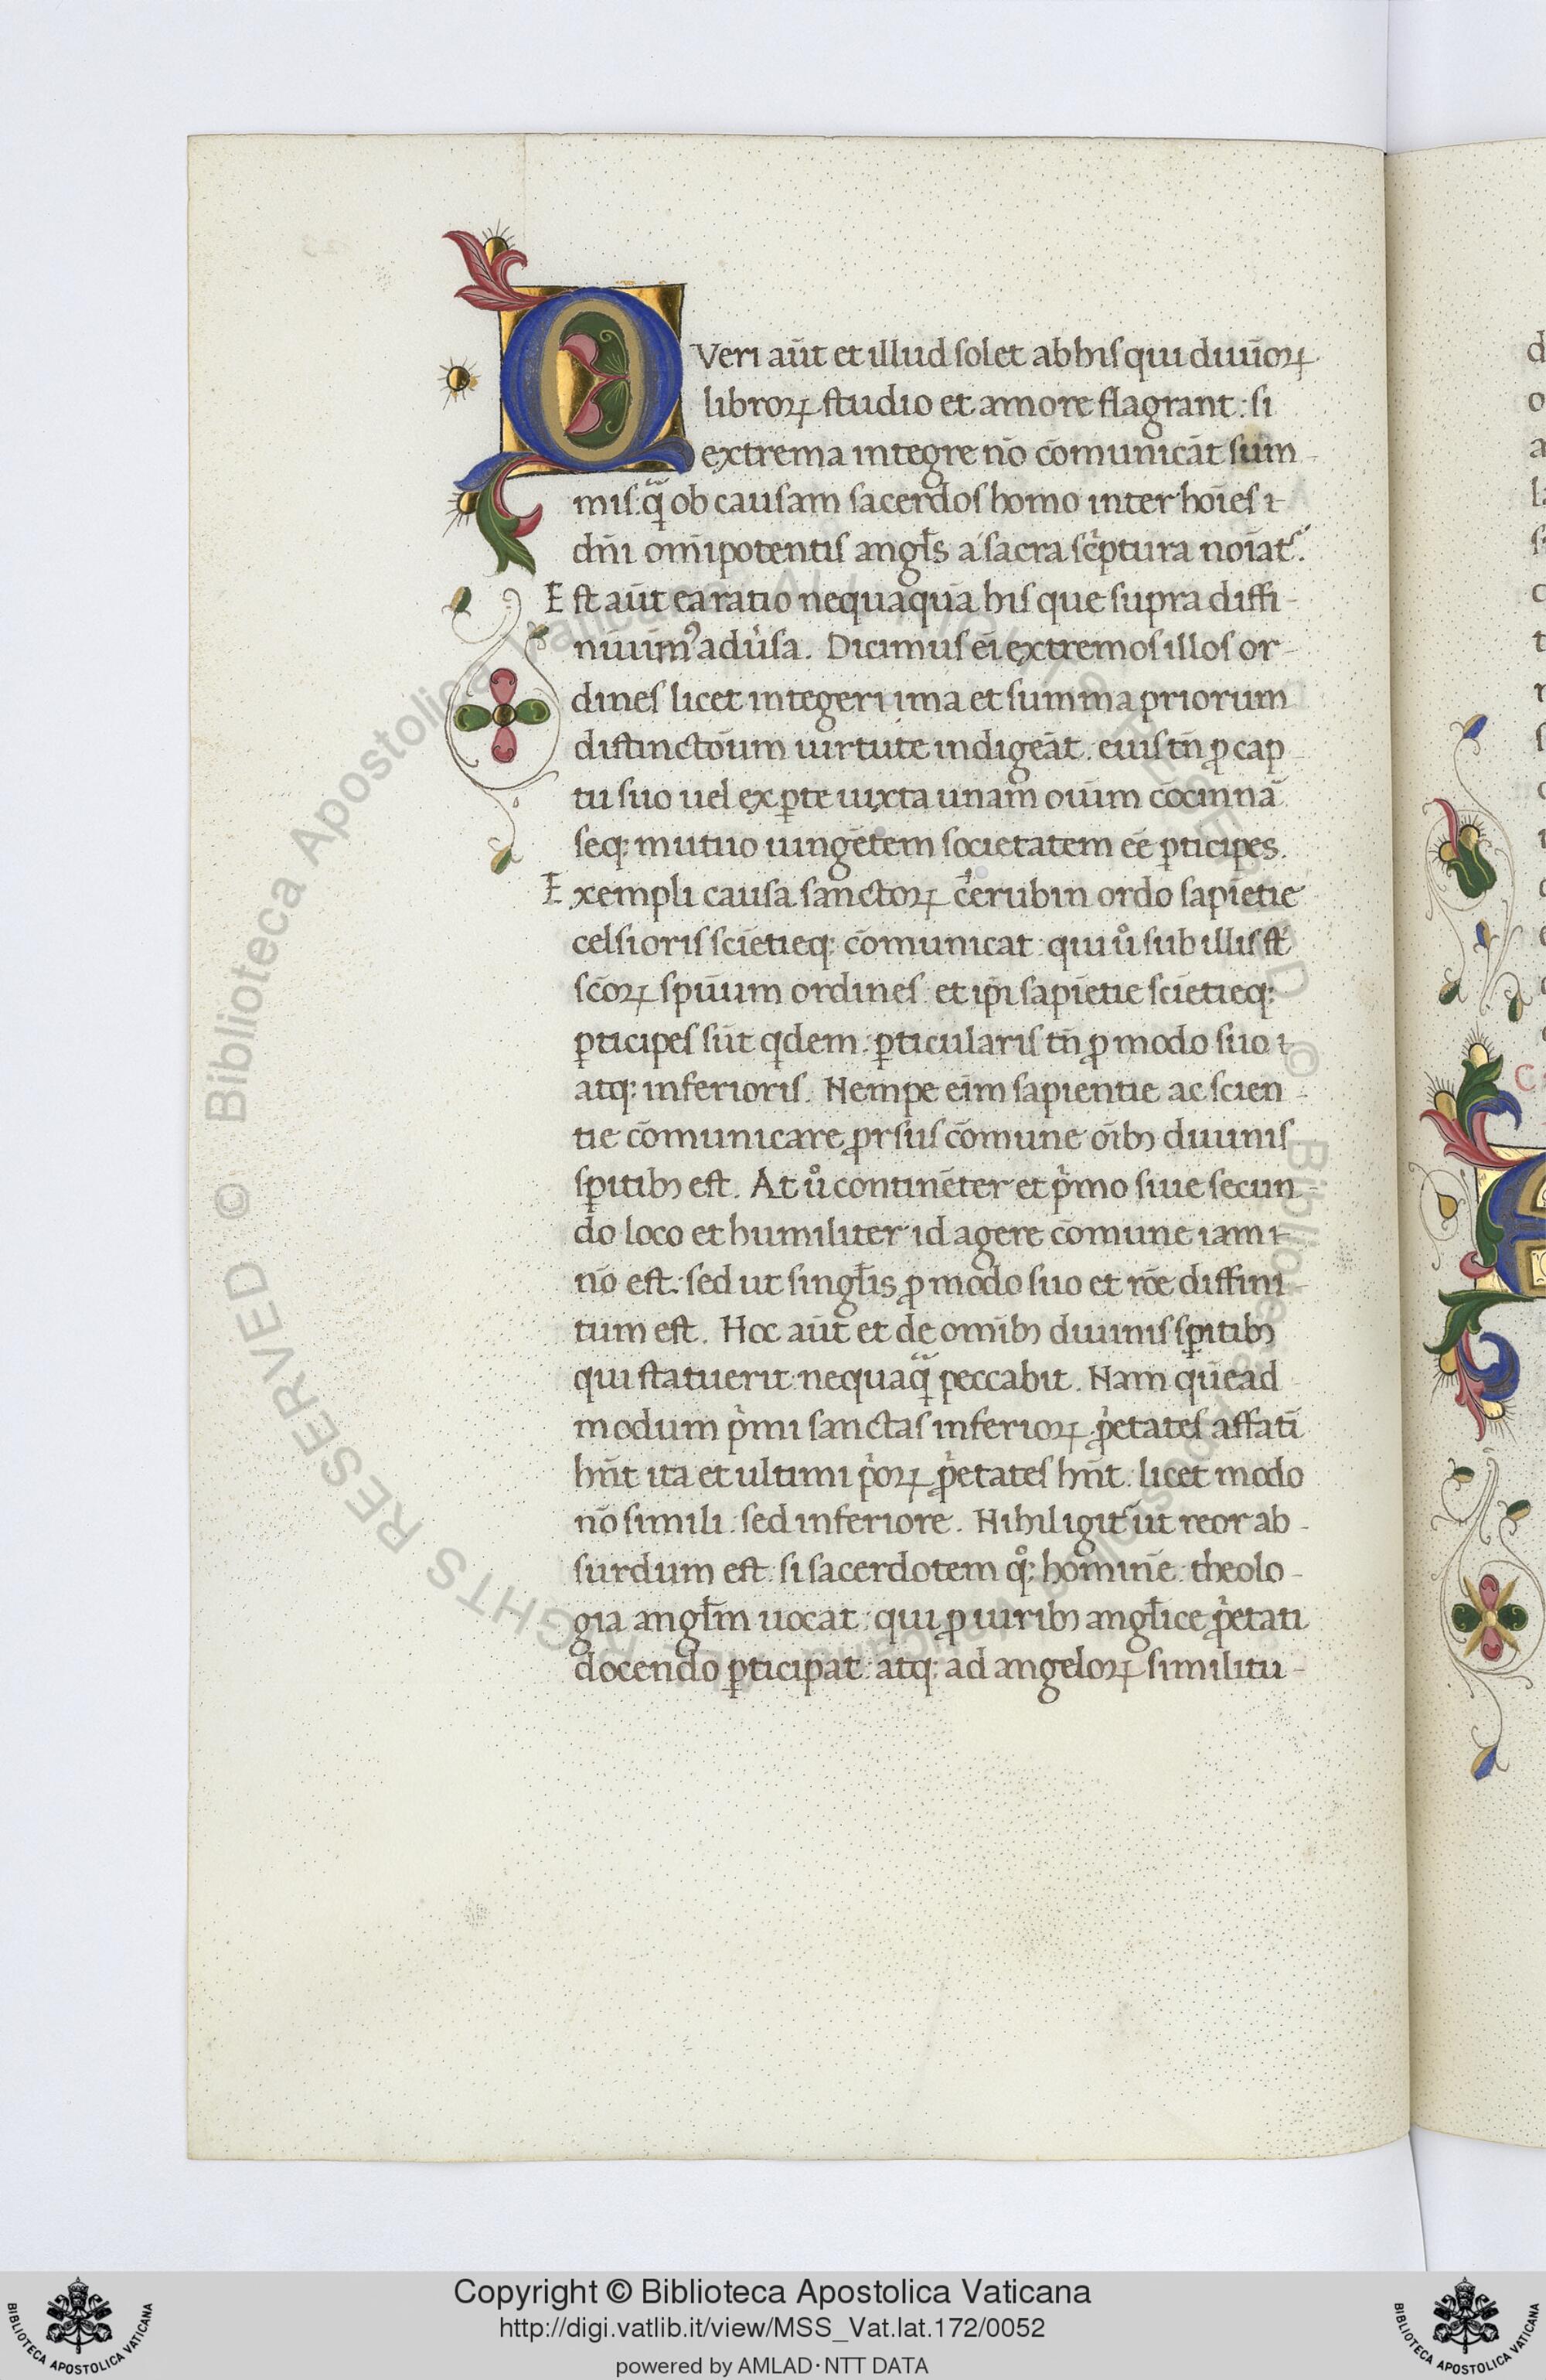 Queri aūt et illud solet ab his qui diuīoꝝ
libroꝝ studio et amore flagrant: si
extrema integre nō cōmunicāt sum-
mis: qͣ̄ ob causam sacerdos homo inter hoīes ⁊
dn̄i om̄ipotentis angl̄s a sacra scͥptura noīat᷑.
Est aūt ea ratio nequaquā his que supra diffi-
niuimꝰ adu̓sa. Dicimus ei̅ extremos illos or-
dines licet integeri ima et summa priorum
distinctōum uirtute indigeāt. euis tn̄ ꝓ cap-
tu suo uel ex ꝑte iuxta unam oūim cōcinnā
seq: mutuo iungētem societatem eē ꝑticipes.
Exempli causa sanctoꝝ cherubin ordo sapiētie
celsioris sciētieq: cōmunicat: qui uͦ sub illis st̄
scōꝝ spūum ordines: et ip̄i sapiētie sciētieq:
ꝑticipes sūt qdem: ꝑticularis tn̄ ꝓ modo suo ⁊
atq: inferioris. Nempe eim̄ sapientie ac scien-
tie cōmunicare ꝓrsus cōmune oībꝫ diuinis
sp̄itibꝫ est. At uͦ continēter et pͥmo siue secun-
do loco et humiliter id agere cōmune iam ⁊
nō est: sed ut singl̄is ꝓ modo suo et rōe diffini-
tum est. Hoc aūt et de omībꝫ diuinis sp̄itibꝫ
qui statuerit nequaqͣ̄ peccabit. Nam quēad
modum pͥmi sanctas inferioꝝ ꝓͥetates affatī
hn̄t ita et ultimi pͥoꝝ ꝓͥetates hn̄t: licet modo
nō simili: sed inferiore. Nihil igit᷑ ut reor ab-
surdum est: si sacerdotem qͦq: hominē theolo-
gia angl̄m uocat: qui ꝓ uiribꝫ angl̄ice ꝓͥetati
docendo ꝑticipat: atq: ad angeloꝝ similitu-
Copyright © Biblioteca Apostolica Vaticana
http://digi.vatlib.it/view/MSS_Vat.lat.172/0052
powered by AMLAD·NTT DATA
BIBLIOTECA APOSTOLICA VATICANA
BIBLIOTECA APOSTOLICA VATICANA